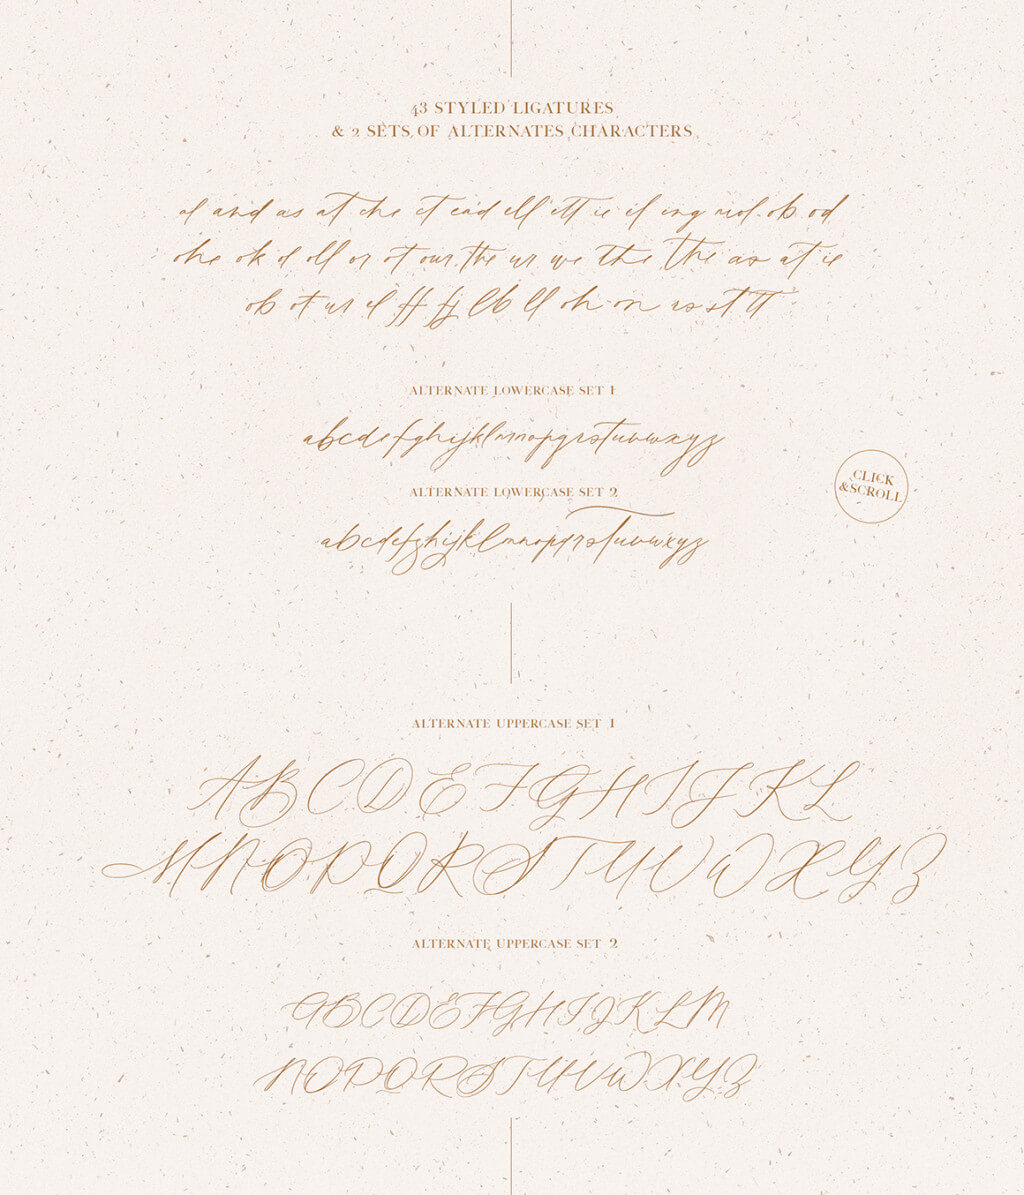 43 STYLED LIGATURES
& 2 SETS OF ALTERNATES CHARACTERS
al and as at che ct ead ell ett ie il ing nd ob od
he ok ol oll or ot our the ur we the the as at ie
ob ot us el ff fj lb ll oh on rs st tt
ALTERNATE LOWERCASE SET 1
abcdefghijklmnopqrstuvwxyz
CLICK
&SCROLL
ALTERNATE LOWERCASE SET 2
abcdefghijklmnopqrstuvwxyz
ALTERNATE UPPERCASE SET 1
ABCDEFGHIJKL
MNOPQRSTUVWXYZ
ALTERNATE UPPERCASE SET 2
ABCDEFGHIJKLM
NOPQRSTUVWXYZ